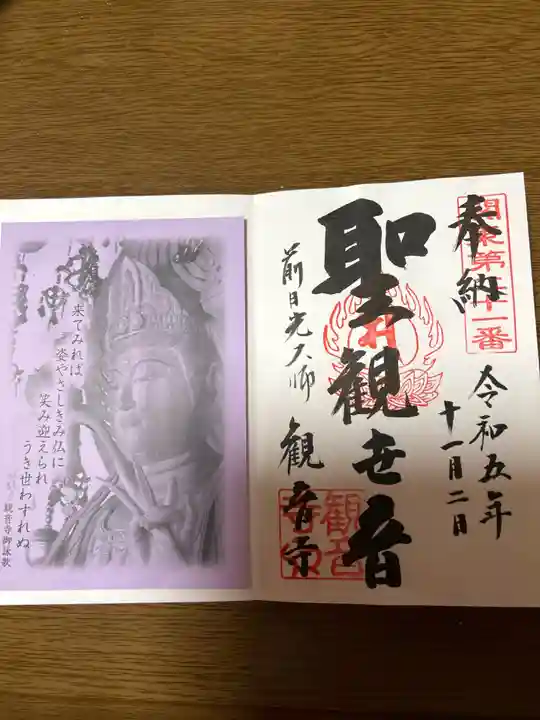 奉納
聖観世音
前日光大師 観音寺
令和五年
十一月二日
番
観音
寺
来てみれば
姿やさしきみ仏に
笑み迎えられ
うき世わすれぬ
観音寺御詠歌